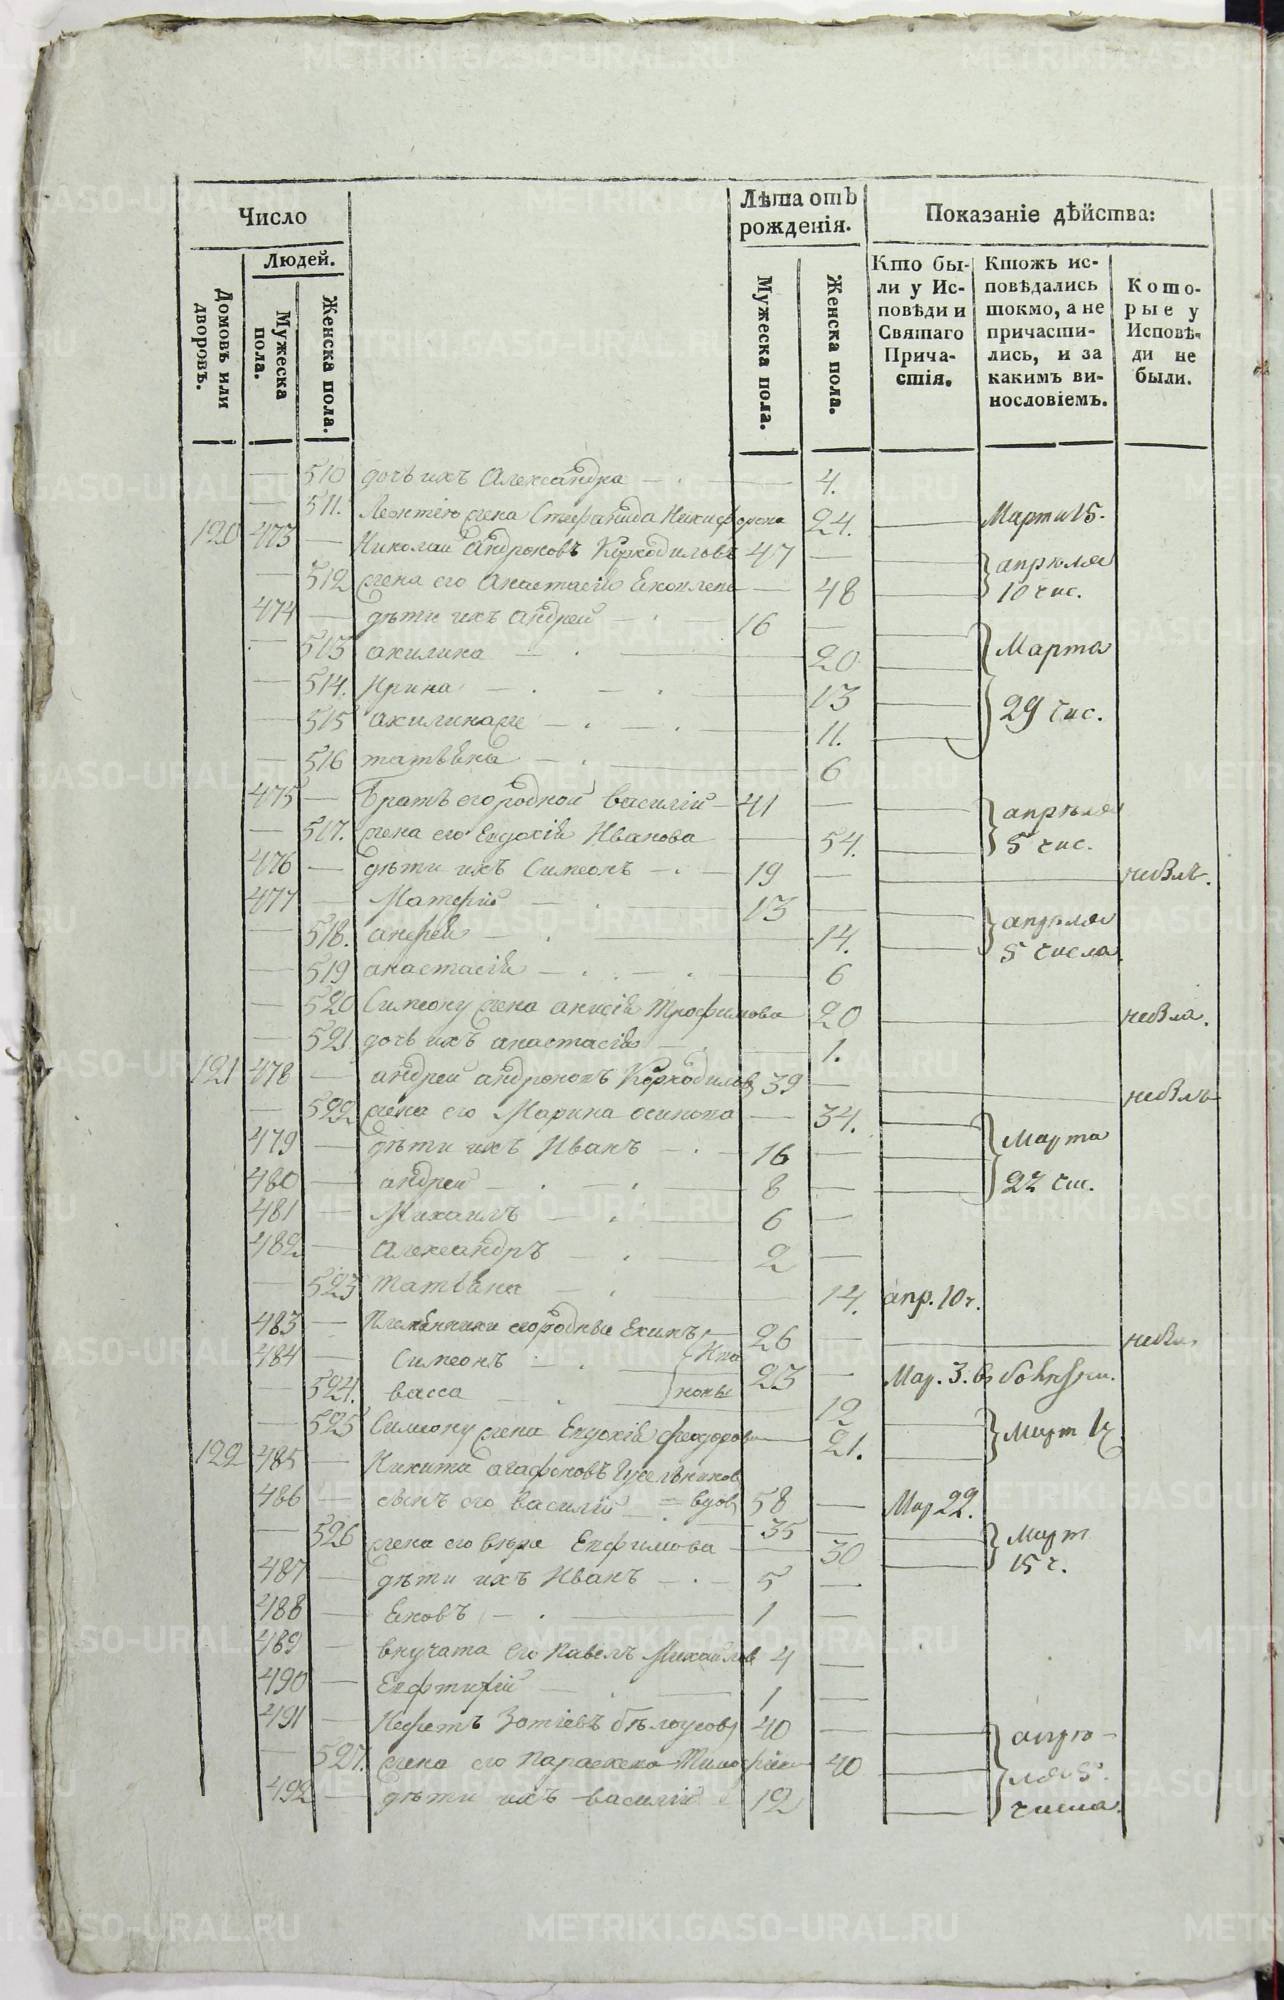 Число
Лѣта отъ рожденія.
Показаніе дѣйства:
Людей.
Домовъ или дворовъ.
Мужеска пола.
Женска пола.
Мужеска пола.
Женска пола.
Кто бы-
ли у Ис-
повѣди и
Святаго
Прича-
стія.
Ктожъ ис-
повѣдались
токмо, а не
причасти-
лись, и за
какимъ ви-
нословіемъ.
Кото-
рые у
Исповѣ-
ди не
были.
— 510 дочь ихъ Александра — 4.
— 511. Леонтію жена Стефанида Никифорова 24. — Марта 15.
120 473 — Николай Андроновъ Коркодиловъ 47 — апрѣля
— 512 жена его Анастасія — 48 — 10 чис.
474 — дѣти ихъ Андрей — 16 —
— 513 акилина — 20 — Марта
— 514. Ирина — 13 —
— 515 акилина же — 11. — 29 чис.
— 516 татьяна — 6
475 — братъ его родной василій — 41 — апрѣля
— 517. жена его Евдокія Иванова — 54. — 5 чис.
476 — дѣти ихъ Симеонъ — 19 — небылъ.
477 — 13 — апрѣля
— 518. — 14. — 5 числа
— 519 анастасія — 6
— 520 Симеону жена анисія Трофимова 20 — небыла.
— 521 дочь ихъ анастасія — 1.
121 478 — андрей андроновъ Коркодиловъ 39 — небылъ
— 522 жена его Марина осипова — 34. — Марта
479 — дѣти ихъ Иванъ — 16 —
480 — андрей — 8 — 22 чи.
481 — Михаилъ — 6 —
482 — Александръ — 2 —
— 523 Татьяна — 14. апр. 10 ч.
483 — Племянники его родные — 26 —
484 — Симеонъ — 23 — Мар. 3. въ
— 524. васса — 12 —
— 525 Симеону жена Евдокія феодорова — 21. — Март
122 485 — Никита агафоновъ Гусельниковъ
вдовъ 58 — Мар 22.
486 — сынъ его василій — 35 — Март
— 526 жена его вѣра Ефимова — 30 — 15 ч.
487 — дѣти ихъ Иванъ — 5 —
488 — Іаковъ — 1 —
489 — внучата его павелъ Михайловъ 4 —
490 — 1 —
491 — Зотіевъ бѣлоусовъ 40 — апрѣ-
— 527. жена его Параскева Тимофеева 40 — ля 5.
492 — дѣти ихъ василій 12 — числа.
METRIKI.GASO-URAL.RU